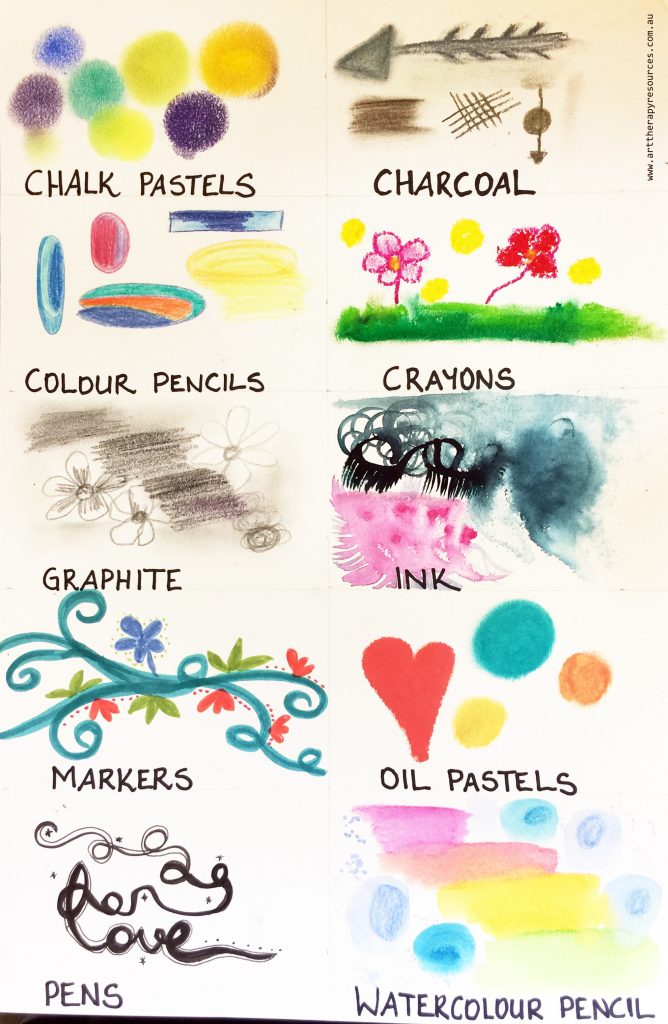 www.arttherapyresources.com.au
CHALK PASTELS
CHARCOAL
COLOUR PENCILS
CRAYONS
GRAPHITE
INK
MARKERS
OIL PASTELS
love
PENS
WATERCOLOUR PENCIL